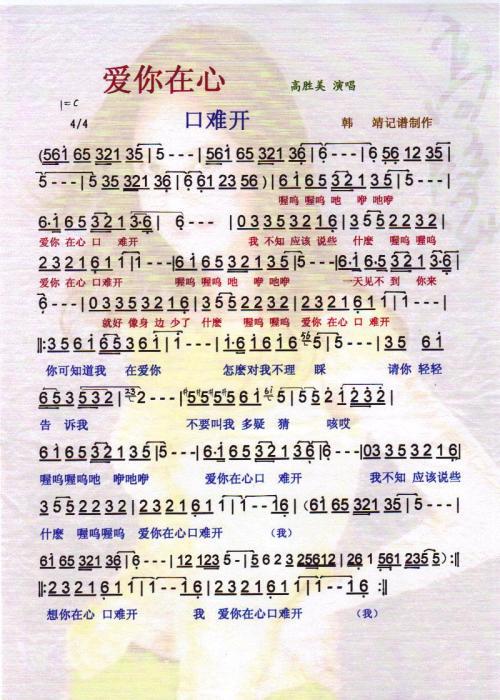 爱你在心
高胜美 演唱
1=C
4/4
口难开
韩 靖记谱制作
(561 65 321 35 | 5 - - - | 561 65 321 36 | 6 - - - | 6 56 12 35 |
5 - - - | 5 35 321 36 | 6 61 23 56 ) | 61 65 32 1 35 | 5 - - - |
喔呜 喔呜 吔 咿 吔咿
6·1 65 32 1 3·6 | 6 - - - | 0 3 3 5 3 2 1 6 | 3 5 5 2 2 3 2 |
爱你 在心 口 难开 我 不知 应该 说些 什麽 喔呜 喔呜
2 3 2 1 6 1 1 | 1 - - - | 6·1 65 32 1 35 | 5 - - - | 6·1 65 321 3·6 |
爱你 在心 口难开 喔呜 喔呜 吔 咿 吔咿 一天见不 到 你来
6 - - - | 0 3 3 5 3 2 1 6 | 3 5 5 2 2 3 2 | 2 3 2 1 6 1 1 | 1 - - - |
就好 像身 边 少了 什麽 喔呜 喔呜 爱你 在心 口 难开
你可知道我 在爱你 怎麽对我不理 睬 请你 轻轻
告 诉我 不要叫我 多疑 猜 咳哎
喔呜喔呜吔 咿吔咿 爱你在心口 难开 我不知 应该说些
3 5 5 2 2 3 2 | 2 3 2 1 6 1 1 | 1 - - 1 6 | ( 61 65 321 35 | 5 - - - |
什麽 喔呜喔呜 爱你在心口难开 （我）
61 65 321 36 | 6 - - - | 12 123 5 - | 5 6 2 3 25612 | 26 1 561 235 5 ) :||
||: 2 3 2 1 6 1 1 | 1 - - 1 6 | 2 3 2 1 6 1 1 | 1 - - 1 6 :||
想你在心 口难开 我 爱你在心口难开 （我）